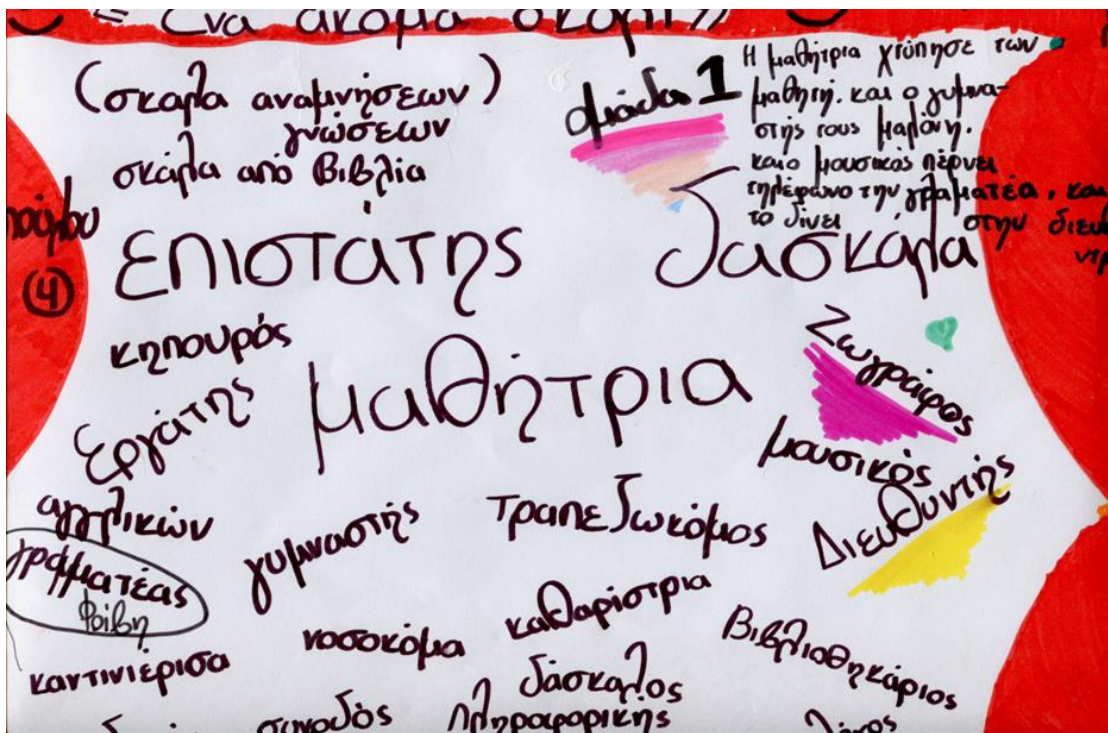 Ένα ακόμα σκαλί
(σκάλα αναμνήσεων)
γνώσεων
σκάλα από Βιβλία
ομάδα 1
Η μαθήτρια χτύπησε των
μαθητή. και ο γυμνα-
στής τους μαλόνη.
και ο μουσικός πέρνει
τηλέφωνο την γραματέα, και
το δίνει στην διευ
ντρ
(4)
Επιστάτης
δασκάλα
κηπουρός
Ζωγράφος
Εργάτης
μαθήτρια
μουσικός
Διευθυντής
αγγλικών
γυμναστής
τραπεζωκόμος
γραμματέας
Φοίβη
καθαρίστρια
νοσοκόμα
Βιβλιοθηκάριος
καντινιέρισα
δάσκαλος
πληροφορικής
συνοδός